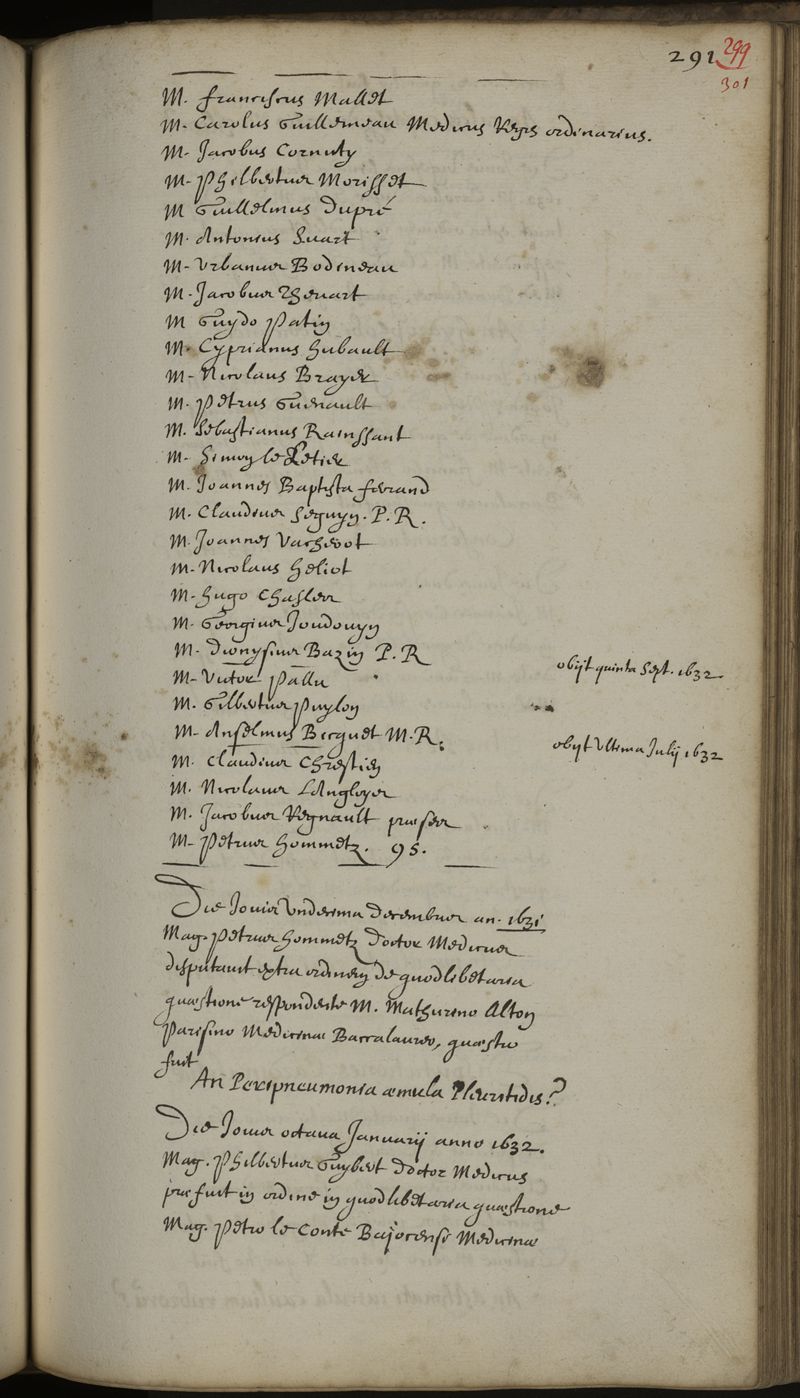 291 299
301
M. Franciscus Mallet
M. Carolus Guillemeau Medicus Regis ordinarius.
M. Jacobus Cornuty
M. Philbertus Morisset
M Guillelmus Dupré
M. Antonius
M. Urbanus Bodineau
M. Jacobus Thevart
M Guydo Patin
M. Cyprianus Hubault
M. Nicolaus Brayer
M. Petrus Guenault
M. Sebastianus Rainssant
M. Simon le Letier
M. Joannes Baptista ferrand
M. Claudius Seguyn. P. R.
M. Joannes Vacherot
M. Nicolaus Heliot
M. Hugo Chasles
M. Georgius Joudouyn
M. Dionysius Bazin P. R obijt quinta Sept. 1632.
M. Victor Pallu
M. Gilbertus Puylon
M. Anselmus Bicquet M. R. obijt Ultima Julij 1632
M. Claudius Chrestien
M. Nicolaus Langloys
M. Jacobus Regnault præses
M. Petrus Hommetz. 95.
Die Jovis Undecima Decembris an. 1631
Mag. Petrus Hommetz Doctor Medicus
disputavit extra ordinem de quodlibetaria
quæstione respondente M. Mathurino Alton
Parisino Medicinæ Baccalaureo, quæstio
fuit
An Peripneumonia æmula Pleuritidis?
Die Jovis octava Januarij anno 1632.
Mag. Philbertus Guybert Doctor Medicus
præfuit in ordine in quodlibetaria quæstione
Mag. Petro le Conte Bajocensi Medicinæ